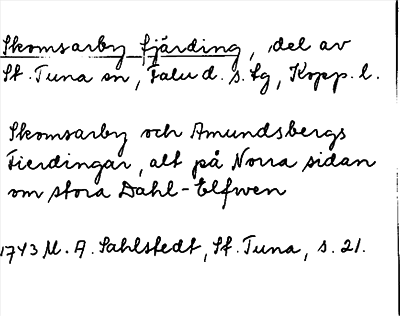 Skomsarby fjärding, del av
St. Tuna sn, Falu d. s. lg, Kopp. l.
Skomsarby och Amundsbergs
Fierdingar, alt på Norra sidan
om stora Dahl-Elfwen
1743 M. A. Sahlstedt, St. Tuna, s. 21.